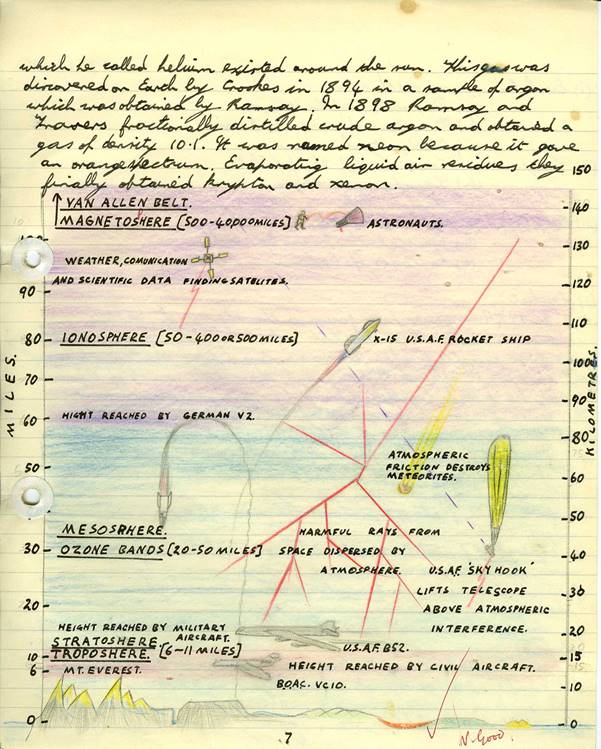 which he called helium existed around the sun. This gas was
discovered on Earth by Crookes in 1894 in a sample of argon
which was obtained by Ramsay. In 1898 Ramsay and
Travers fractionally distilled crude argon and obtained a
gas of density 10.1. It was named neon because it gave
an orange spectrum. Evaporating liquid air residues they
finally obtained krypton and xenon.
150
VAN ALLEN BELT.
140
MAGNETOSHERE [500-40,000 MILES]
ASTRONAUTS.
130
WEATHER, COMUNICATION
AND SCIENTIFIC DATA FINDING SATELITES.
120
90
110
80
IONOSPHERE [50-400 OR 500 MILES]
X-15 U.S.A.F. ROCKET SHIP
100
70
90
MILES.
KILOMETRES.
60
HIGHT REACHED BY GERMAN V2.
80
ATMOSPHERIC
FRICTION DESTROYS
METEORITES.
50
60
50
MESOSPHERE.
HARMFUL RAYS FROM
30
OZONE BANDS [20-50 MILES]
SPACE DISPERSED BY
40
ATMOSPHERE.
U.S.A.F. 'SKY HOOK'
LIFTS TELESCOPE
30
20
ABOVE ATMOSPHERIC
HEIGHT REACHED BY MILITARY
AIRCRAFT.
INTERFERENCE.
20
STRATOSHERE
U.S.A.F. B52.
10
TROPOSHERE. [6-11 MILES]
15
6
MT. EVEREST.
HEIGHT REACHED BY CIVIL AIRCRAFT.
B.O.A.C. VC10.
10
0
0
7
V. Good.